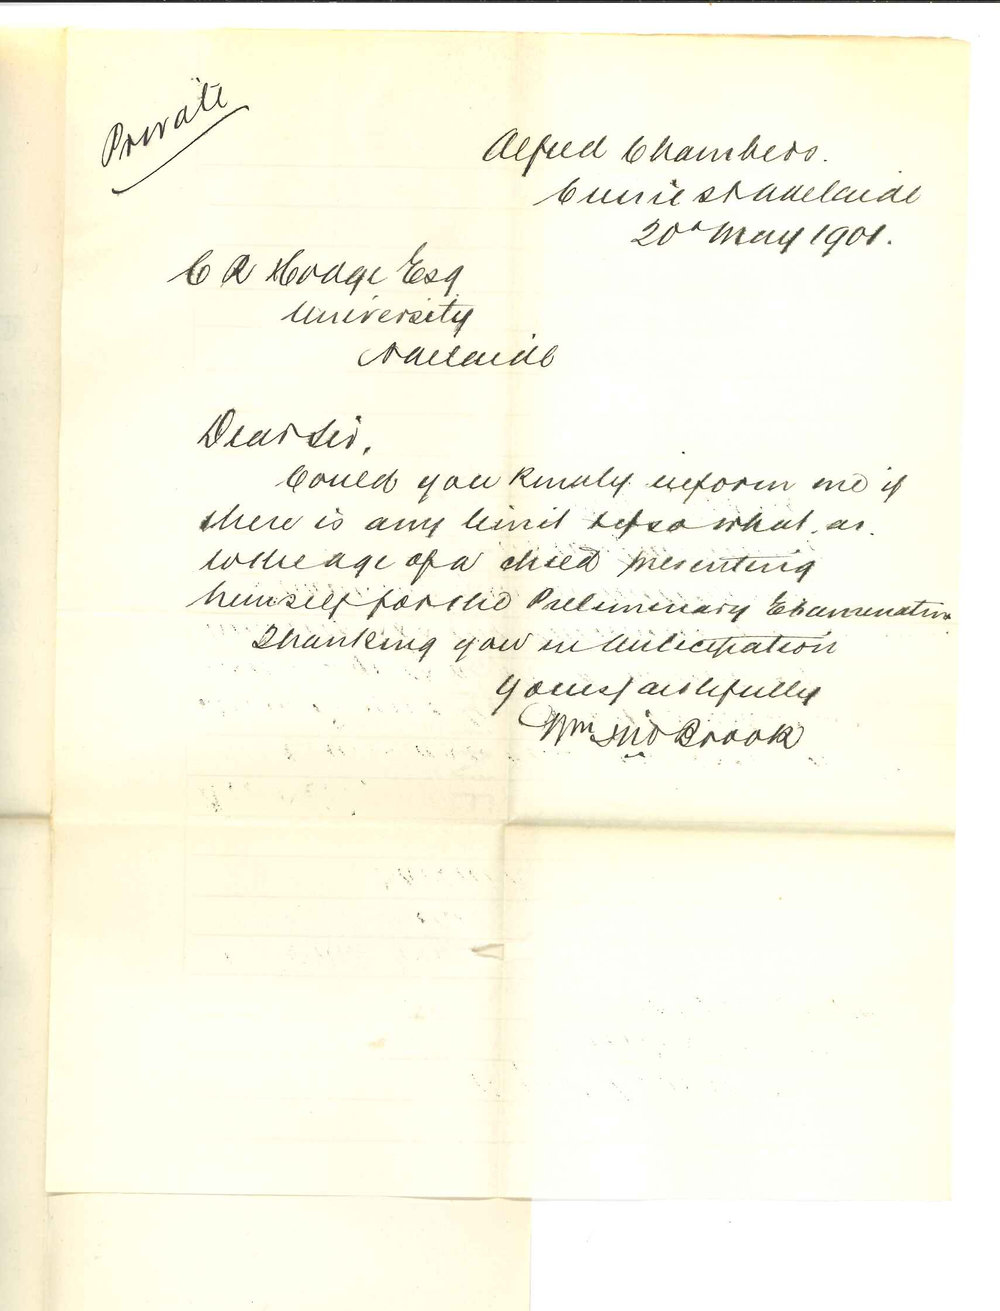 Private
Alfred Chambers.
Currie St Adelaide
20th May 1901.
C R Hodge Esq
University
Adelaide
Dear Sir,
Could you kindly inform me if
there is any limit what as
to the age of a child presenting
himself for the Preliminary Examination.
Thanking you in anticipation
Yours faithfully
Wm Brook